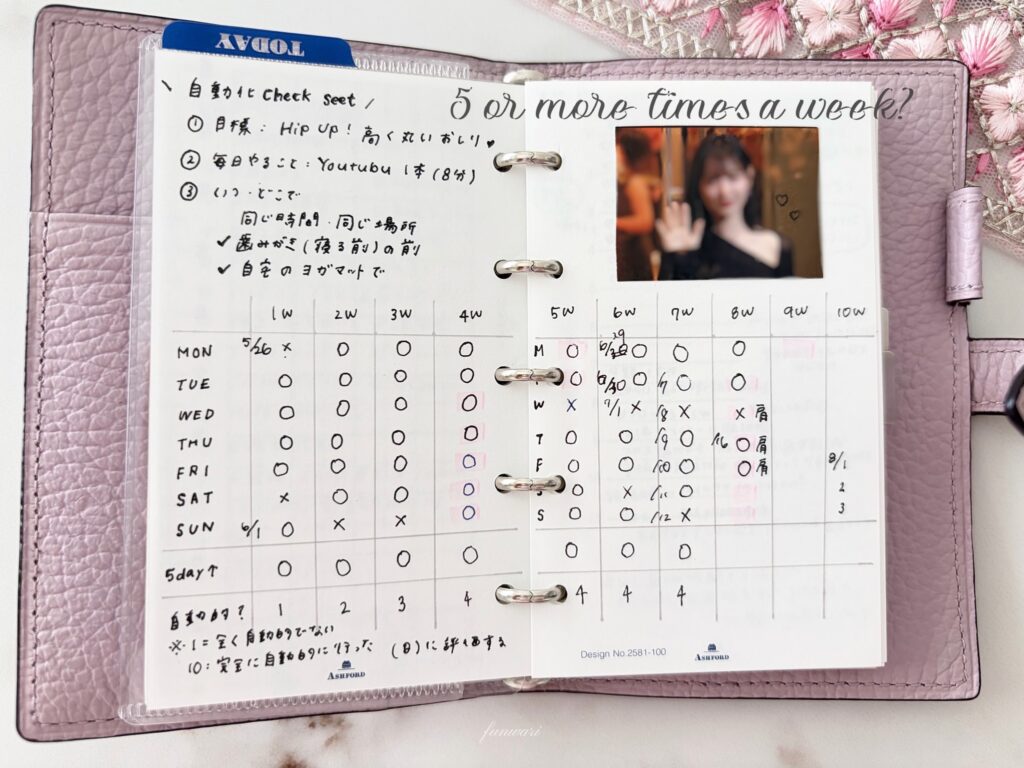 TODAY
\ 自動化 Check Seet /
① 目標: Hip Up! 高く丸いおしり♥
② 毎日やること: Youtubu 1本(8分)
③ いつ・どこで
同じ時間・同じ場所
✓ 歯みがき(寝る前)の前
✓ 自宅のヨガマットで
1W 2W 3W 4W
MON 5/26 × ○ ○ ○
TUE ○ ○ ○ ○
WED ○ ○ ○ ○
THU ○ ○ ○ ○
FRI ○ ○ ○ ○
SAT × ○ ○ ○
SUN 6/1 ○ × × ○
5day↑ ○ ○ ○ ○
自動的? 1 2 3 4
※ 1=全く自動的でない
10:完全に自動的に行った (日)に評価する
ASHFORD
5 or more times a week?
5W 6W 7W 8W 9W 10W
M ○ 29 ○ ○ ○
○ 6/30 ○ /7 ○ ○
W × 7/1 × /8 × × 肩
T ○ ○ /9 ○ 7/16 ○ 肩
F ○ ○ /10 ○ ○ 肩 8/1
S ○ × /11 ○ 2
S ○ ○ /12 × 3
○ ○ ○
4 4 4
Design No.2581-100
ASHFORD
funwari